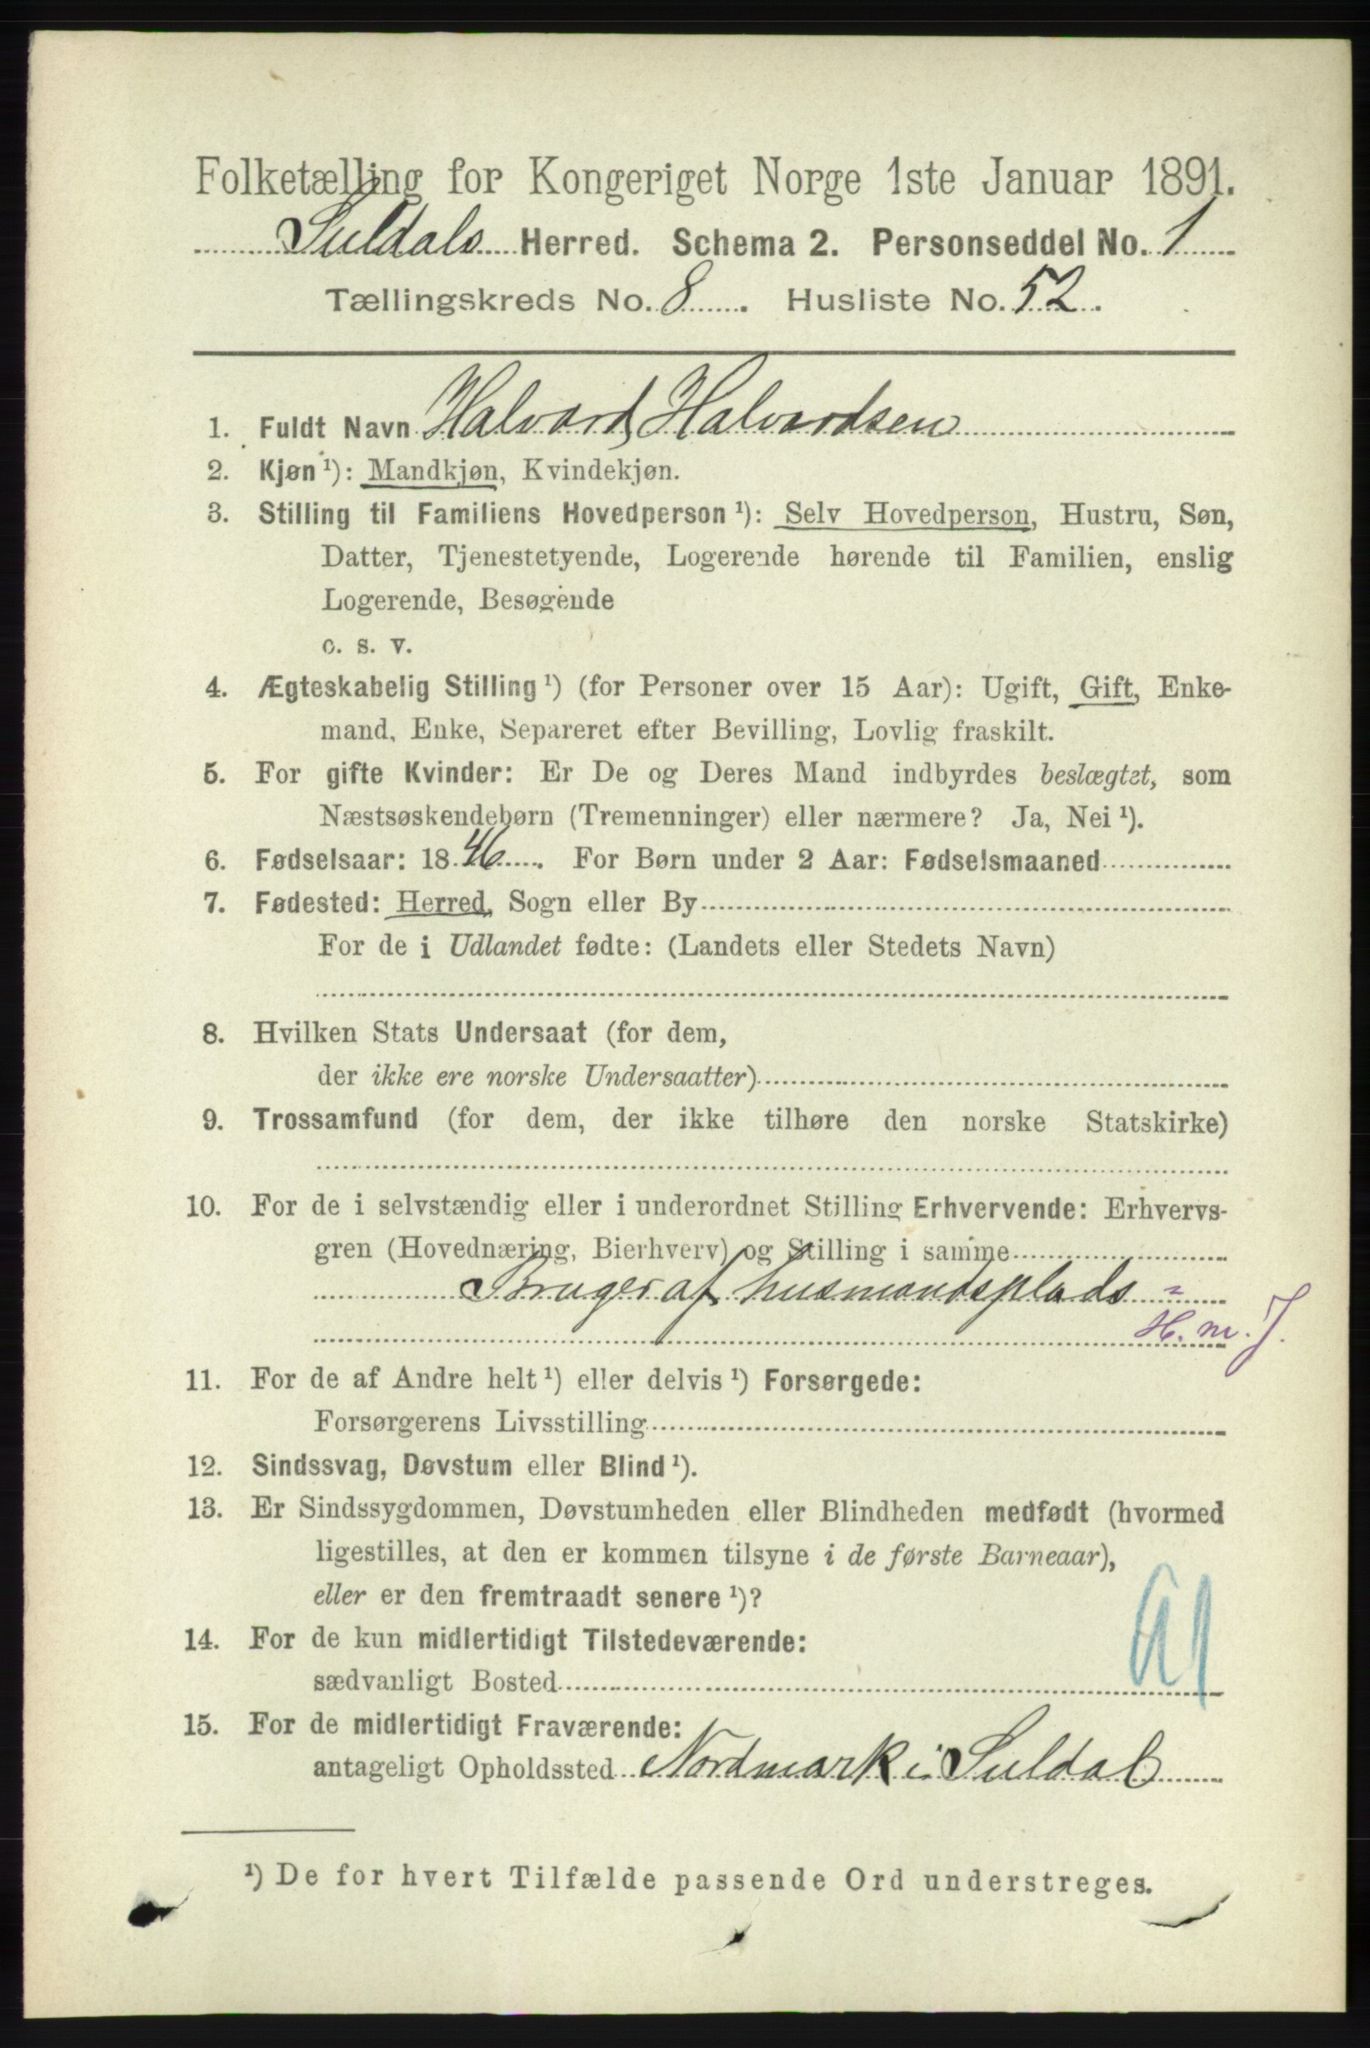 Folketælling for Kongeriget Norge 1ste Januar 1891.
Suldals Herred. Schema 2. Personseddel No. 1
Tællingskreds No. 8. Husliste No. 52.
1. Fuldt Navn Halvard Halvardsen
2. Kjøn ¹): Mandkjøn, Kvindekjøn.
3. Stilling til Familiens Hovedperson ¹): Selv Hovedperson, Hustru, Søn,
Datter, Tjenestetyende, Logerende hørende til Familien, enslig
Logerende, Besøgende
o. s. v.
4. Ægteskabelig Stilling ¹) (for Personer over 15 Aar): Ugift, Gift, Enke-
mand, Enke, Separeret efter Bevilling, Lovlig fraskilt.
5. For gifte Kvinder: Er De og Deres Mand indbyrdes beslægtet, som
Næstsøskendebørn (Tremenninger) eller nærmere? Ja, Nei ¹).
6. Fødselsaar: 1846. For Børn under 2 Aar: Fødselsmaaned
7. Fødested: Herred, Sogn eller By
For de i Udlandet fødte: (Landets eller Stedets Navn)
8. Hvilken Stats Undersaat (for dem,
der ikke ere norske Undersaatter)
9. Trossamfund (for dem, der ikke tilhøre den norske Statskirke)
10. For de i selvstændig eller i underordnet Stilling Erhvervende: Erhvervs-
gren (Hovednæring, Bierhverv) og Stilling i samme
Bruger af husmandsplads =
H. m. J.
11. For de af Andre helt ¹) eller delvis ¹) Forsørgede:
Forsørgerens Livsstilling
12. Sindssvag, Døvstum eller Blind ¹).
13. Er Sindssygdommen, Døvstumheden eller Blindheden medfødt (hvormed
ligestilles, at den er kommen tilsyne i de første Barneaar),
eller er den fremtraadt senere ¹)?
14. For de kun midlertidigt Tilstedeværende:
sædvanligt Bosted
15. For de midlertidigt Fraværende:
antageligt Opholdssted Nordmark i Suldal
¹) De for hvert Tilfælde passende Ord understreges.